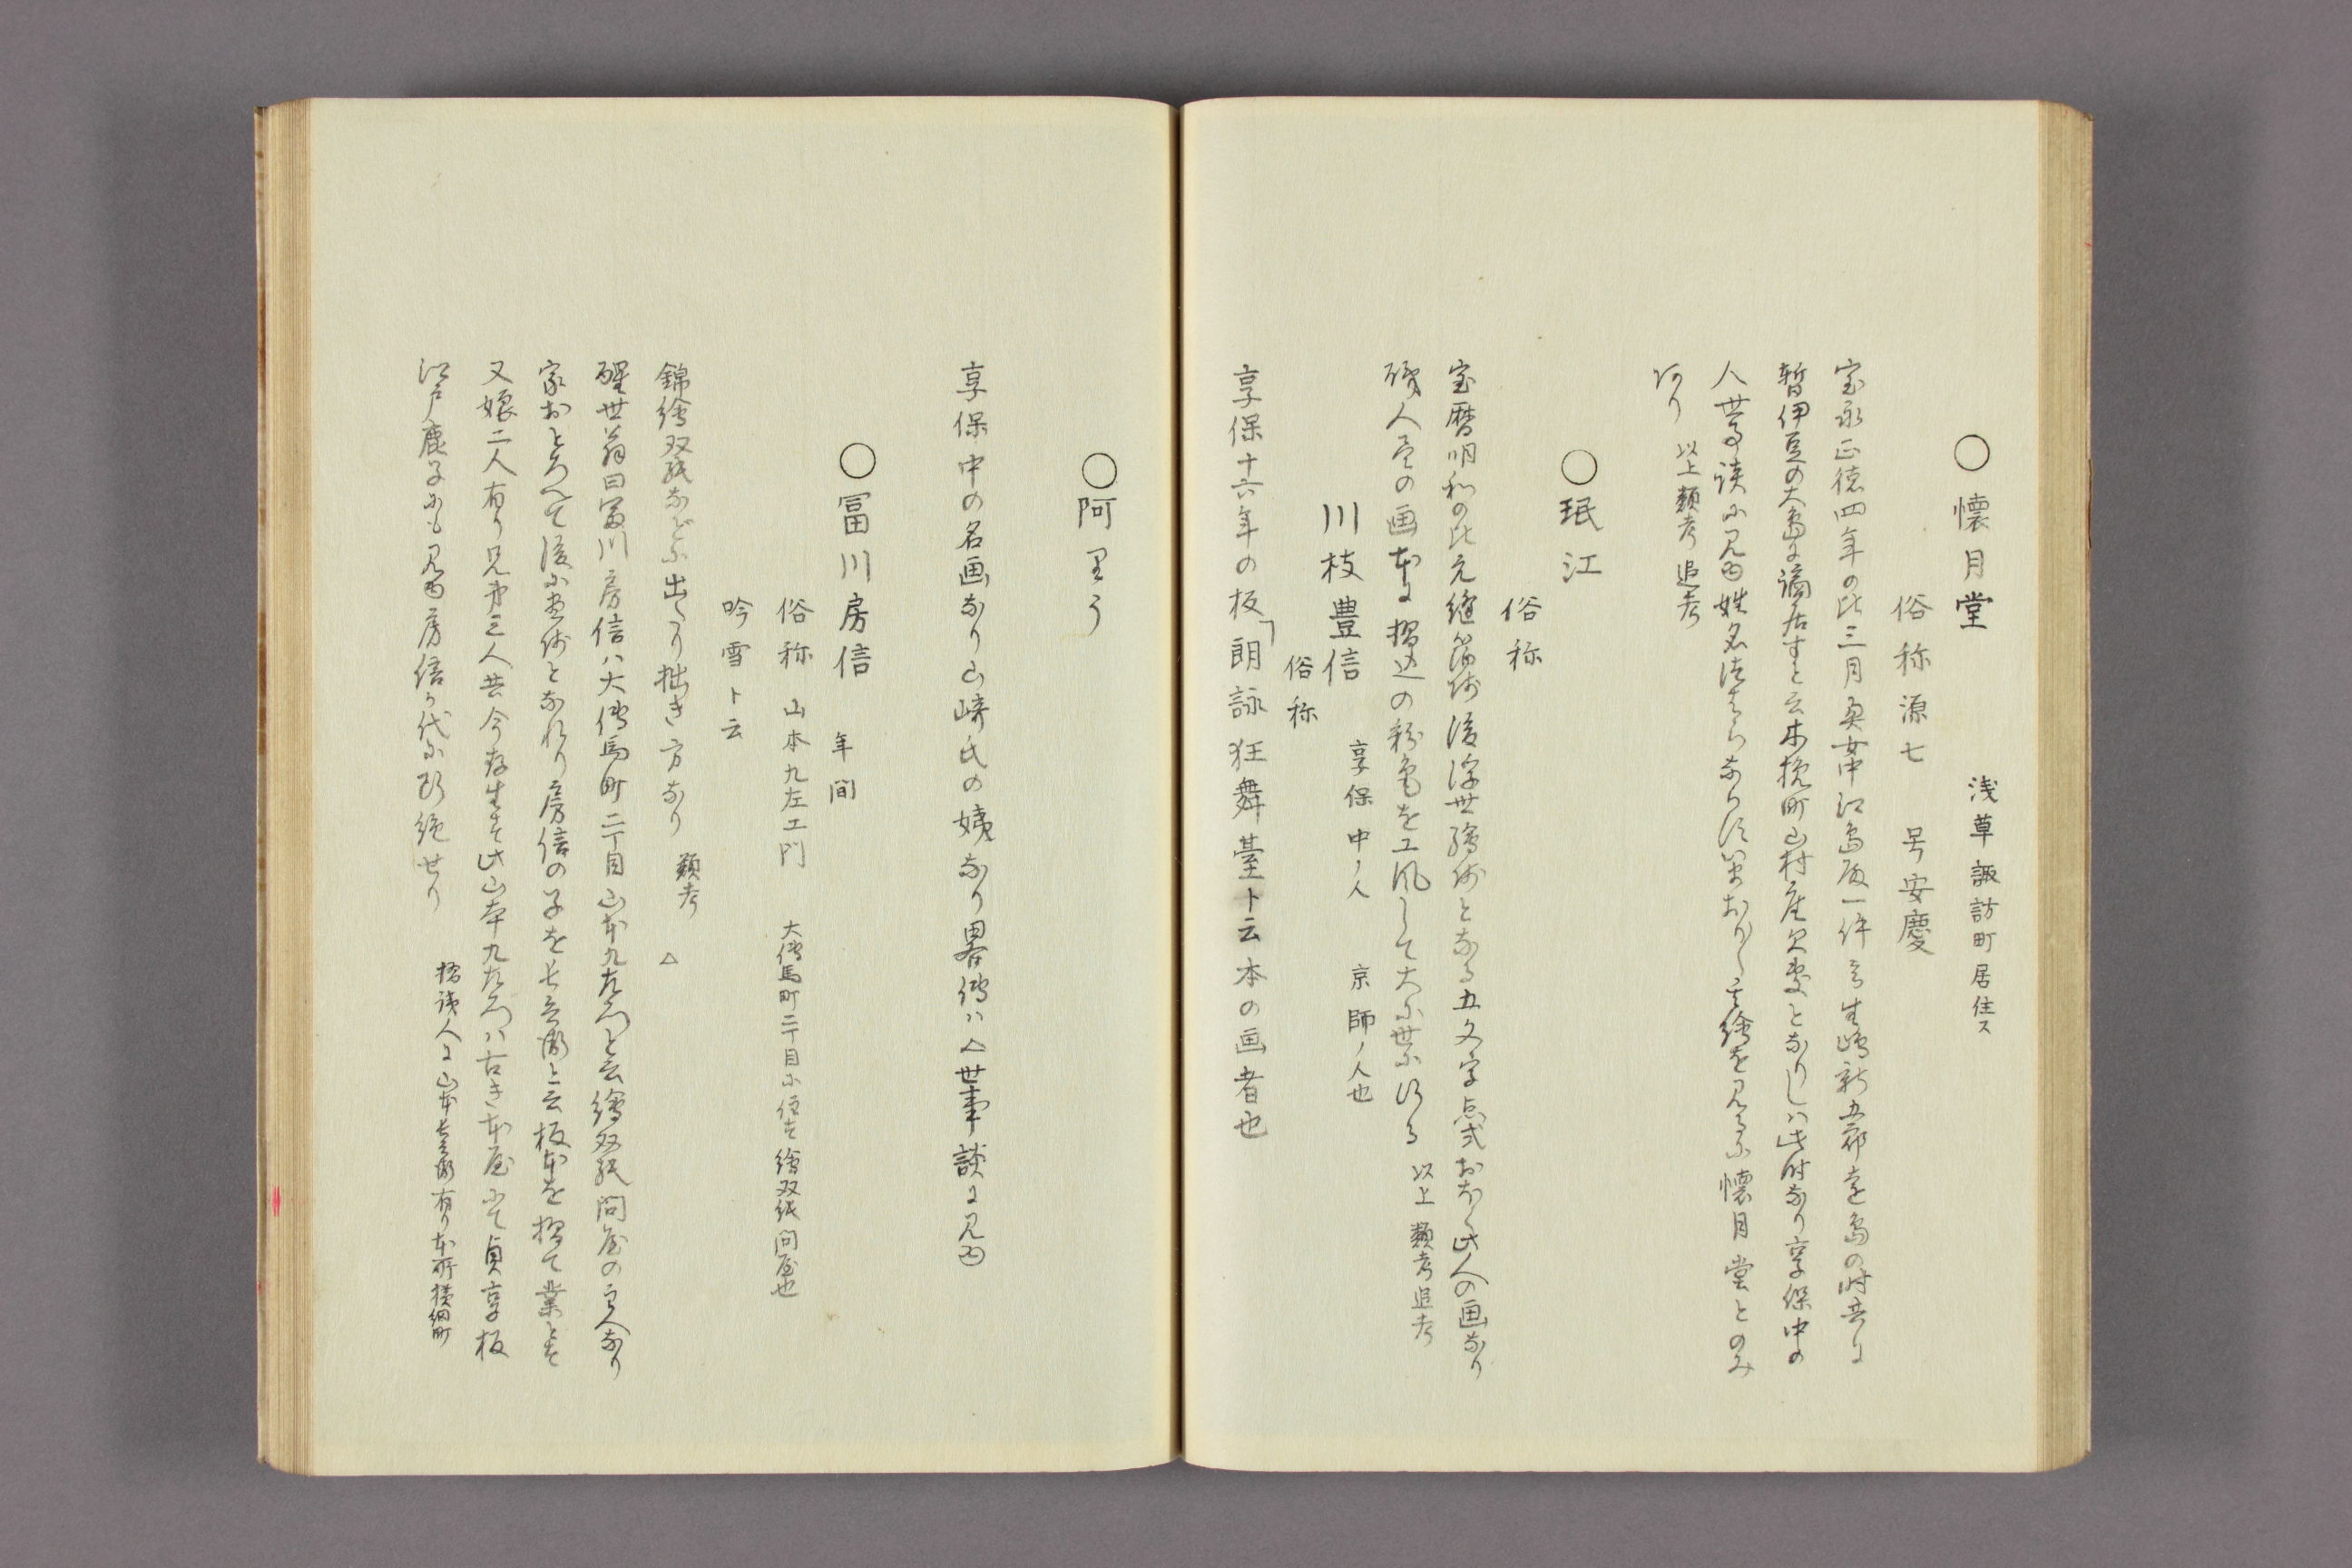 ○懐月堂 浅草諏訪町居住ス
俗称源七 号安慶
宝永正徳四年の比三月奥女中江島殿一件ニて生嶋新五郎遠島の時共に
暫伊豆の大島に謫居すと云木挽町山村座欠座となりしハ此時なり享保中の
人世事談に見ゆ姓名 懐月堂とのみ
あり 以上類考追考
○珉江
俗称
宝暦明和の比 後浮世繪師となる五文字点式 此人の画なり
職人 の画本に摺込の粉色を工風して大に世に行る 以上類考追考
川枝豊信 享保中ノ人 京師ノ人也
俗称
享保十六年の板「朗詠狂舞臺ト云本の画者也
○阿里う
享保中の名画なり山崎氏の姨なり畧傳ハ△世事談に見ゆ
○冨川房信 年間
俗称 山本九左エ門 大傳馬町二丁目に住す繪双紙問屋也
吟雪ト云
錦繪双紙などに出たり拙き方なり 類考 △
醒世翁曰冨川房信ハ大傳馬町二丁目山本九左衛門と云繪双紙問屋の主人なり
家おとろへて後に画師となれり房信の子を長兵衛と云板本を摺て業とす
又娘二人有り兄弟三人共今存生す此山本九左衛門ハ古き本屋にて貞享板
江戸鹿子にも見ゆ房信か代に断絶せり 摺職人に山本長兵衛有り本所横網町